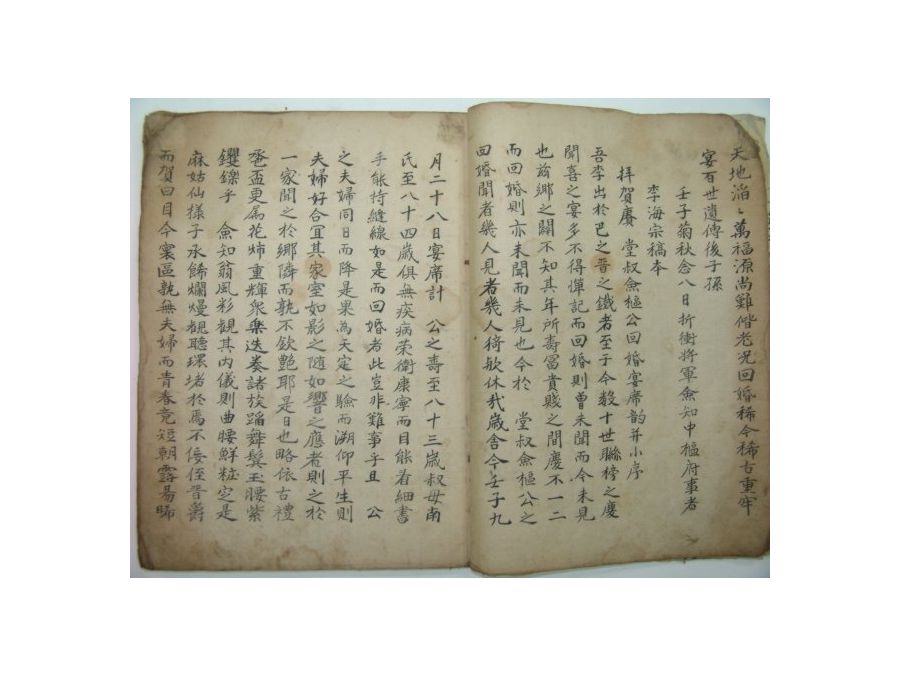 天地滔〻萬福源尚難偕老况回婚稀今稀古重牢
宴百世遺傳後子孫
壬子菊秋念八日折衝將軍僉知中樞府事者
李海宗稿本
拜賀賡 堂叔僉樞公回婚宴席韵并小序
吾李出於巴之晋之鐵者至于今数十世聯榜之慶
聞喜之宴多不得憚記而回婚則曾未聞而今未見
也玆鄉之關不知其年所壽冨貴賤之間慶不一二
而回婚則亦未聞而未見也今於 堂叔僉樞公之
回婚聞者幾人見者幾人猗歟休㦲歳舍今壬子九
月二十八日宴席計 公之壽至八十三歳叔母南
氏至八十四歳俱無疾病荣衛康寧而目能看細書
手能持縫線如是而回婚者此豈非難事乎且 公
之夫婦同日而降是果為天定之驗而溯仰平生則
夫婦好合宜其家室如影之随如響之應者則之於
一家聞之於鄉隣而孰不欽艶耶是日也略依古禮
卺盃更為花燭重輝衆樂迭奏諸族蹈舞鬂玉腰紫
矍鑠乎 僉知翁風彩觀其内儀則曲腰鮮粧定是
麻姑仙様子承餙爛熳観聽環堵於焉不侫侄晋爵
而賀曰目今寰區孰無夫婦而青春竟短朝露易晞